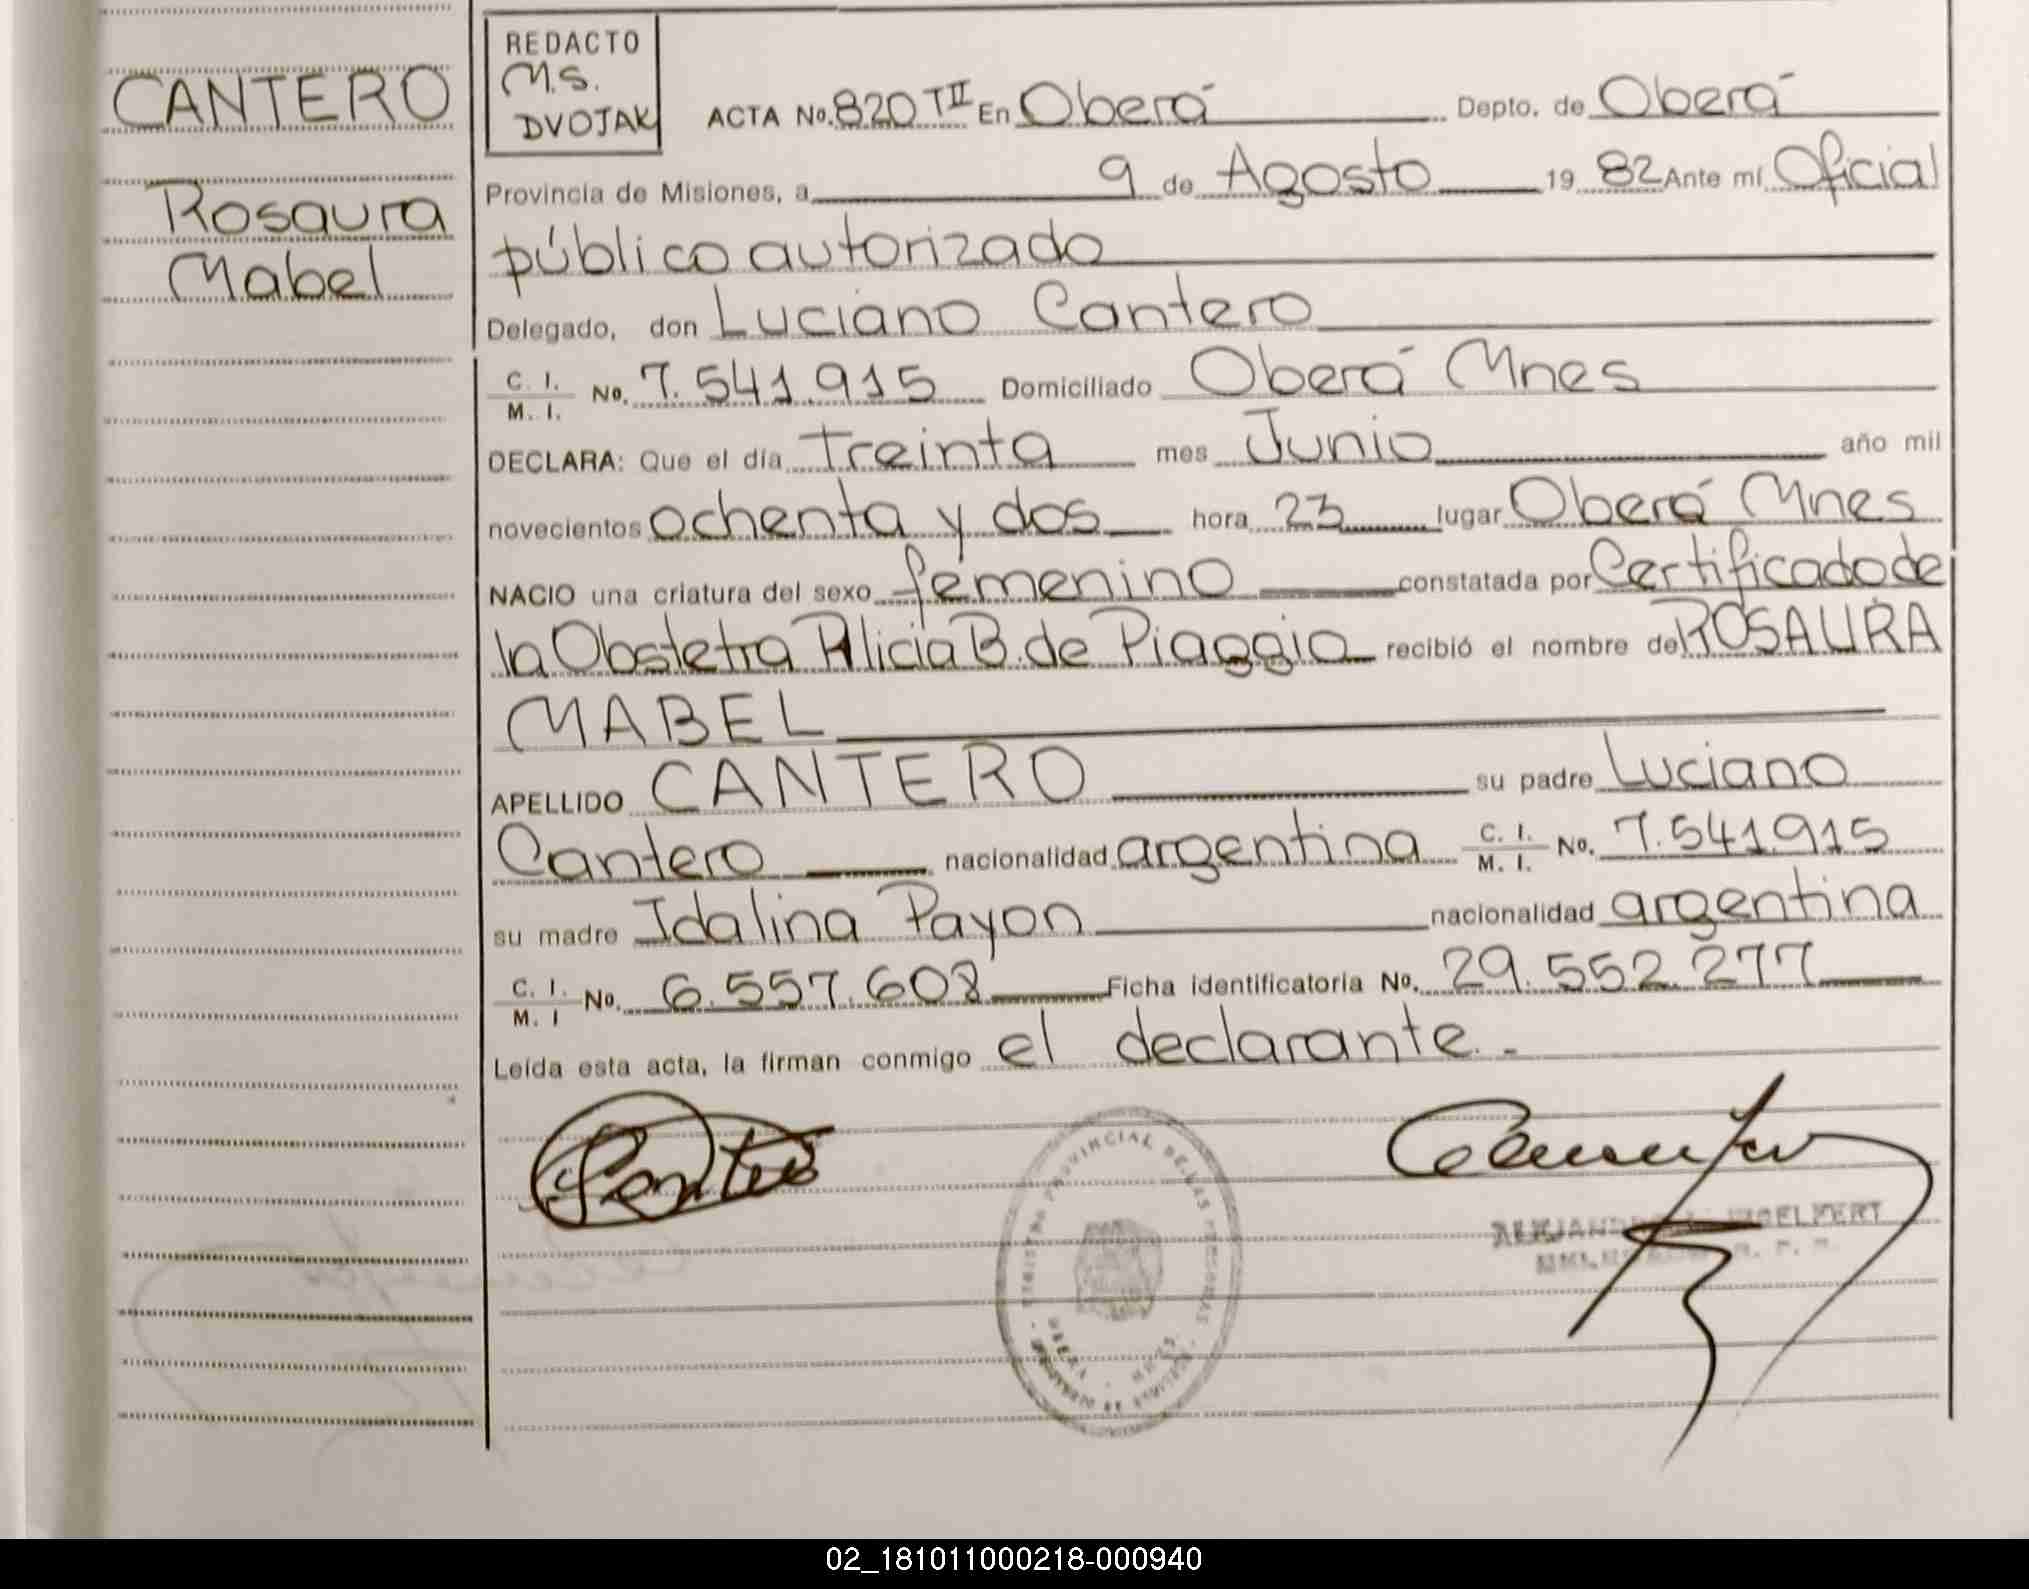 CANTERO
Rosaura
Mabel
REDACTO
M.S.
DVOJAK
ACTA No. 820 TII En Oberá Depto. de Oberá
Provincia de Misiones, a 9 de Agosto 19 82 Ante mí Oficial
público autorizado
Delegado, don Luciano Cantero
C. I. / M. I. No. 7.541.915 Domiciliado Oberá Mnes
DECLARA: Que el día Treinta mes Junio año mil
novecientos ochenta y dos hora 23 lugar Oberá Mnes
NACIO una criatura del sexo femenino constatada por Certificado de
la Obstetra Alicia B. de Piaggio recibió el nombre de ROSAURA
MABEL
APELLIDO CANTERO su padre Luciano
Cantero nacionalidad argentina C. I. / M. I. No. 7.541.915
su madre Idalina Payon nacionalidad argentina
C. I. / M. I No. 6.557.608 Ficha identificatoria No. 29.552.277
Leída esta acta, la firman conmigo el declarante.-
PROVINCIAL DE LAS PERSONAS
02_181011000218-000940